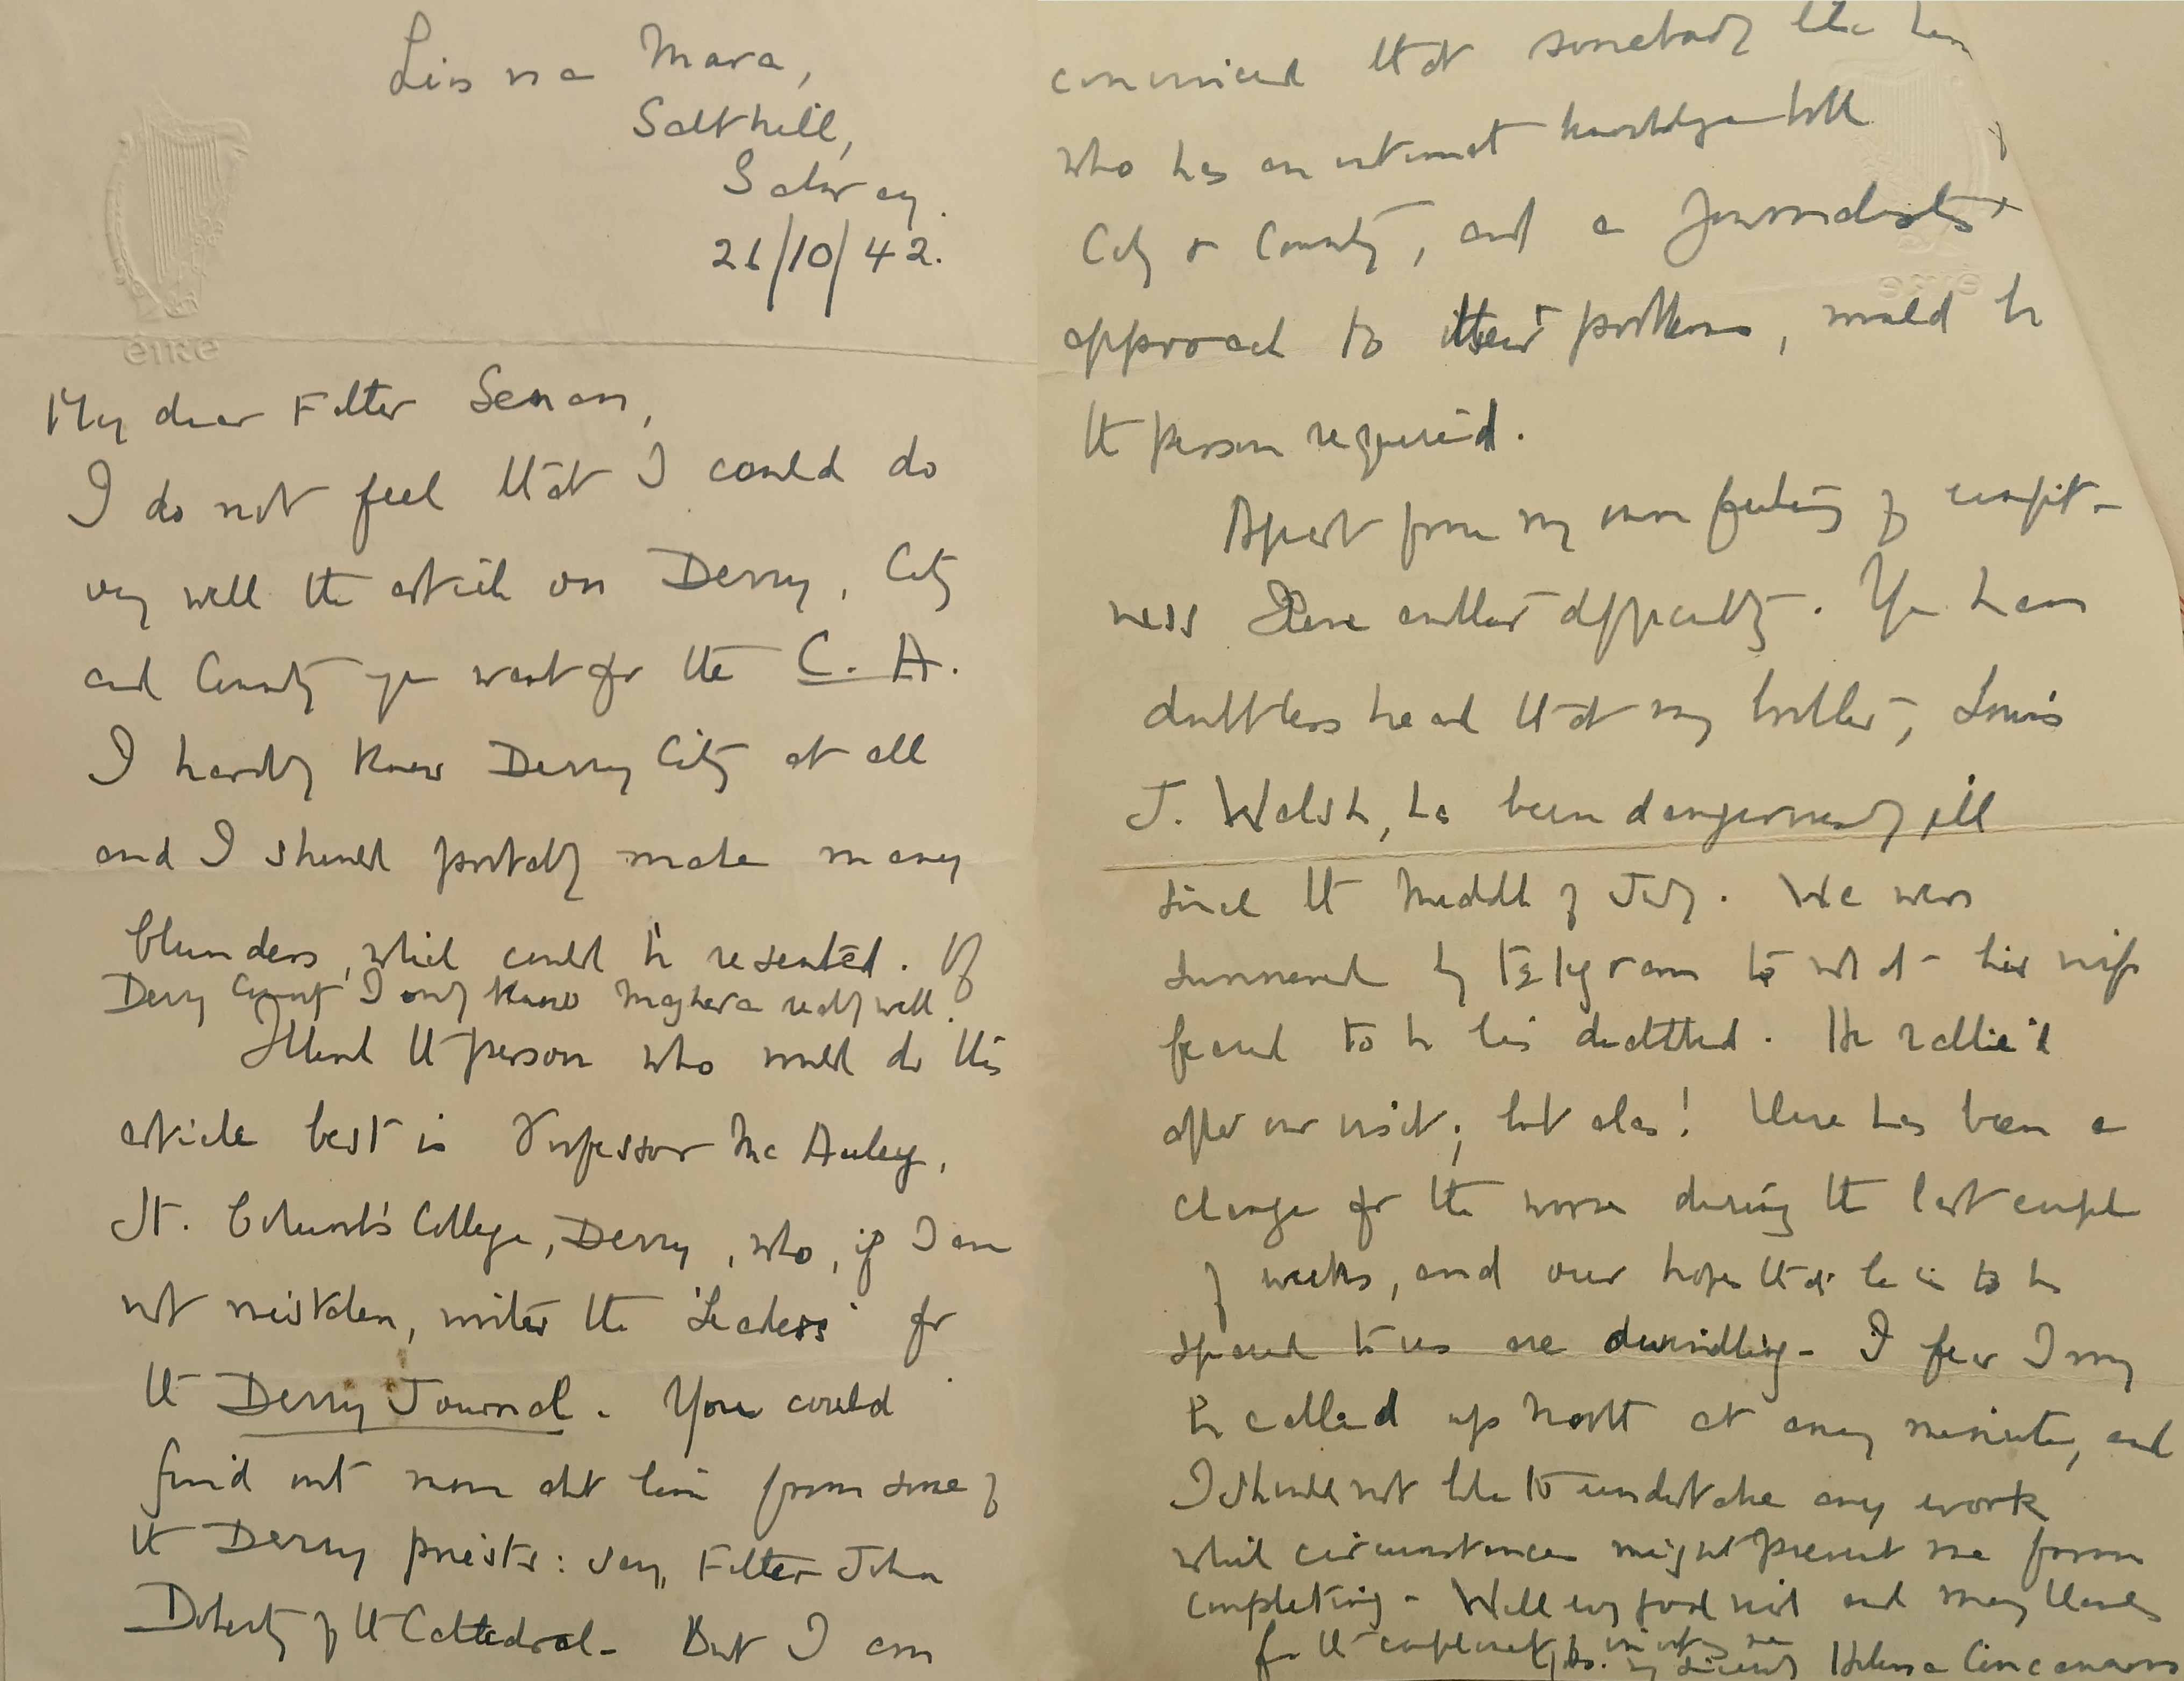 Lios na Mara,
Salthill,
Galway.
26/10/42.
éire
My dear Father Senan,
I do not feel that I could do
very well the article on Derry, City
and County you want for the C. A.
I hardly know Derry City at all
and I should probably make many
blunders, which could be resented. Of
Derry County I only know Maghera really well.
I think the person who would do this
article best is Professor Mc Auley,
St. Columb's College, Derry, who, if I am
not mistaken, writes the 'Leaders' for
the Derry Journal. You could
find out more abt him from some of
the Derry priests: say, Father John
Doherty of the Cathedral. But I am
convinced that somebody like him
who has an intimate knowledge both
City & County, and a journalist's
approach to their problems, would be
the person required.
Apart from my own feeling of unfit-
ness there another difficulty. You have
doubtless heard that my brother, Louis
J. Walsh, has been dangerously ill
since the middle of July. We were
summoned by telegram to what his wife
feared to be his deathbed. He rallied
after our visit; but alas! there has been a
change for the worse during the last couple
of weeks, and our hopes that he is to be
spared to us are dwindling. I fear I may
be called up North at any minute, and
I should not like to undertake any work
which circumstances might prevent me from
completing. With every good wish and many thanks
for the compliment of inviting me
Yrs. very sincerely Helena Concannon